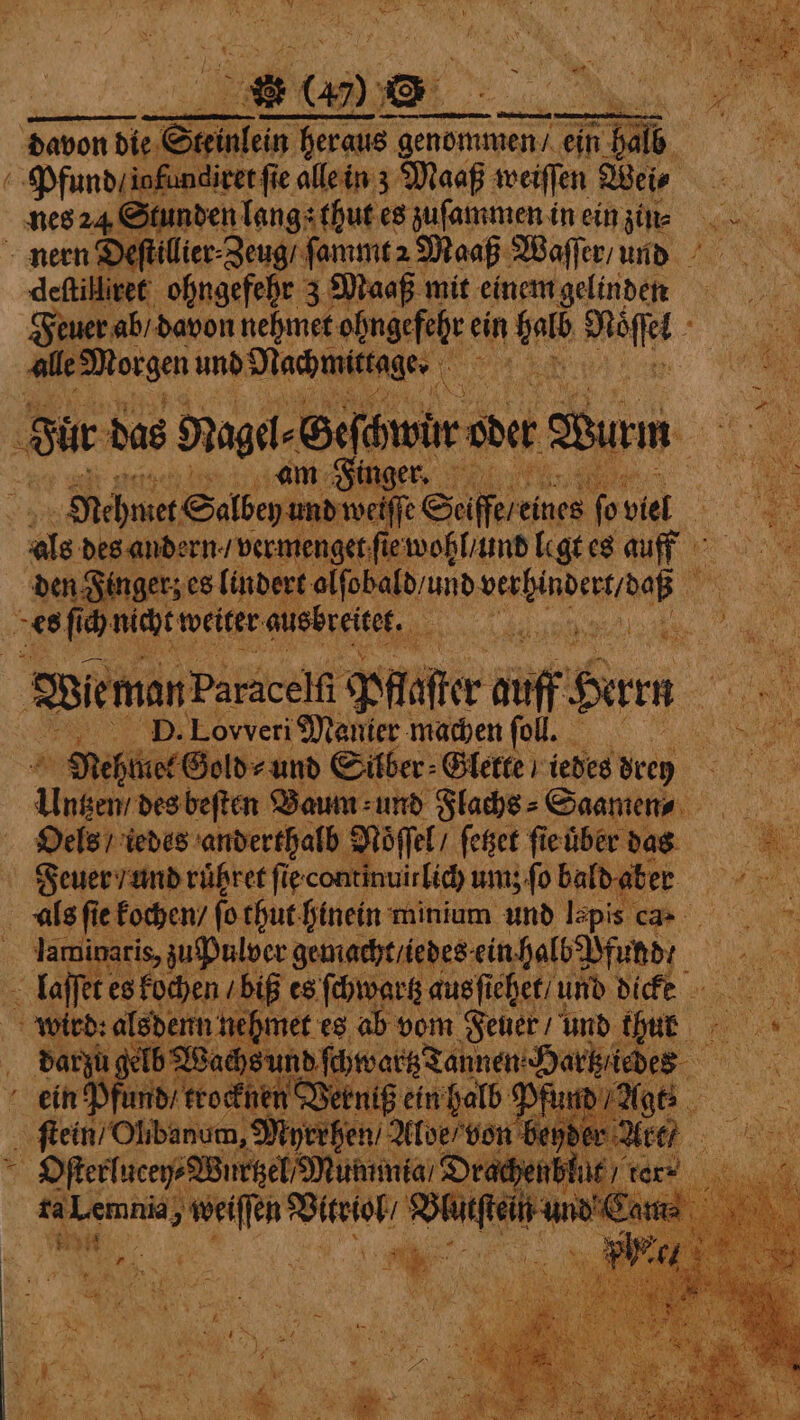 (47)
davon die Steinlein heraus genommen/ ein halb
Pfund/ infundiret ſie alle in 3 Maaß weiſſen Wei-
nes 24 Stunden lang: thut es zuſammen in ein zin-
nern Deſtillier-Zeug/ ſammt 2 Maaß Waſſer/ und
deſtilliret ohngefehr 3 Maaß mit einem gelinden
Feuer ab/ davon nehmet ohngefehr ein halb Nöſſel
alle Morgen und Nachmittage.
Für das Nagel-Geſchwür oder Wurm
am Finger.
Nehmet Salbey und weiſſe Seiffe/ eines ſo viel
als des andern/ vermenget ſie wohl/ und legt es auff
den Finger; es lindert alſobald/ und verhindert/ daß
es ſich nicht weiter ausbreitet.
Wie man Paracelſi Pflaſter auff Herrn
D. Lovveri Manier machen ſoll.
Nehmet Gold- und Silber-Glette/ iedes drey
Untzen/ des beſten Baum- und Flachs-Saamen-
Oels/ iedes anderthalb Nöſſel/ ſetzet ſie über das
Feuer/ und rühret ſie continuirlich um; ſo bald aber
als ſie kochen/ ſo thut hinein minium und lapis ca-
laminaris, zu Pulver gemacht/ iedes ein halb Pfund/
laſſet es kochen/ biß es ſchwartz ausſiehet/ und dicke
wird: alsdenn nehmet es ab vom Feuer/ und thut
darzu gelb Wachs und ſchwartz Tannen-Hartz/ iedes
ein Pfund/ trocknen Verniß ein halb Pfund/ Agt-
ſtein/ Olibanum, Myrrhen/ Aloe/ von beyder Art/
Oſterlucey-Wurtzel/ Mummia/ Drachenblut/ ter-
ra Lemnia, weiſſen Vitriol/ Blutſtein und Cam-
pher/